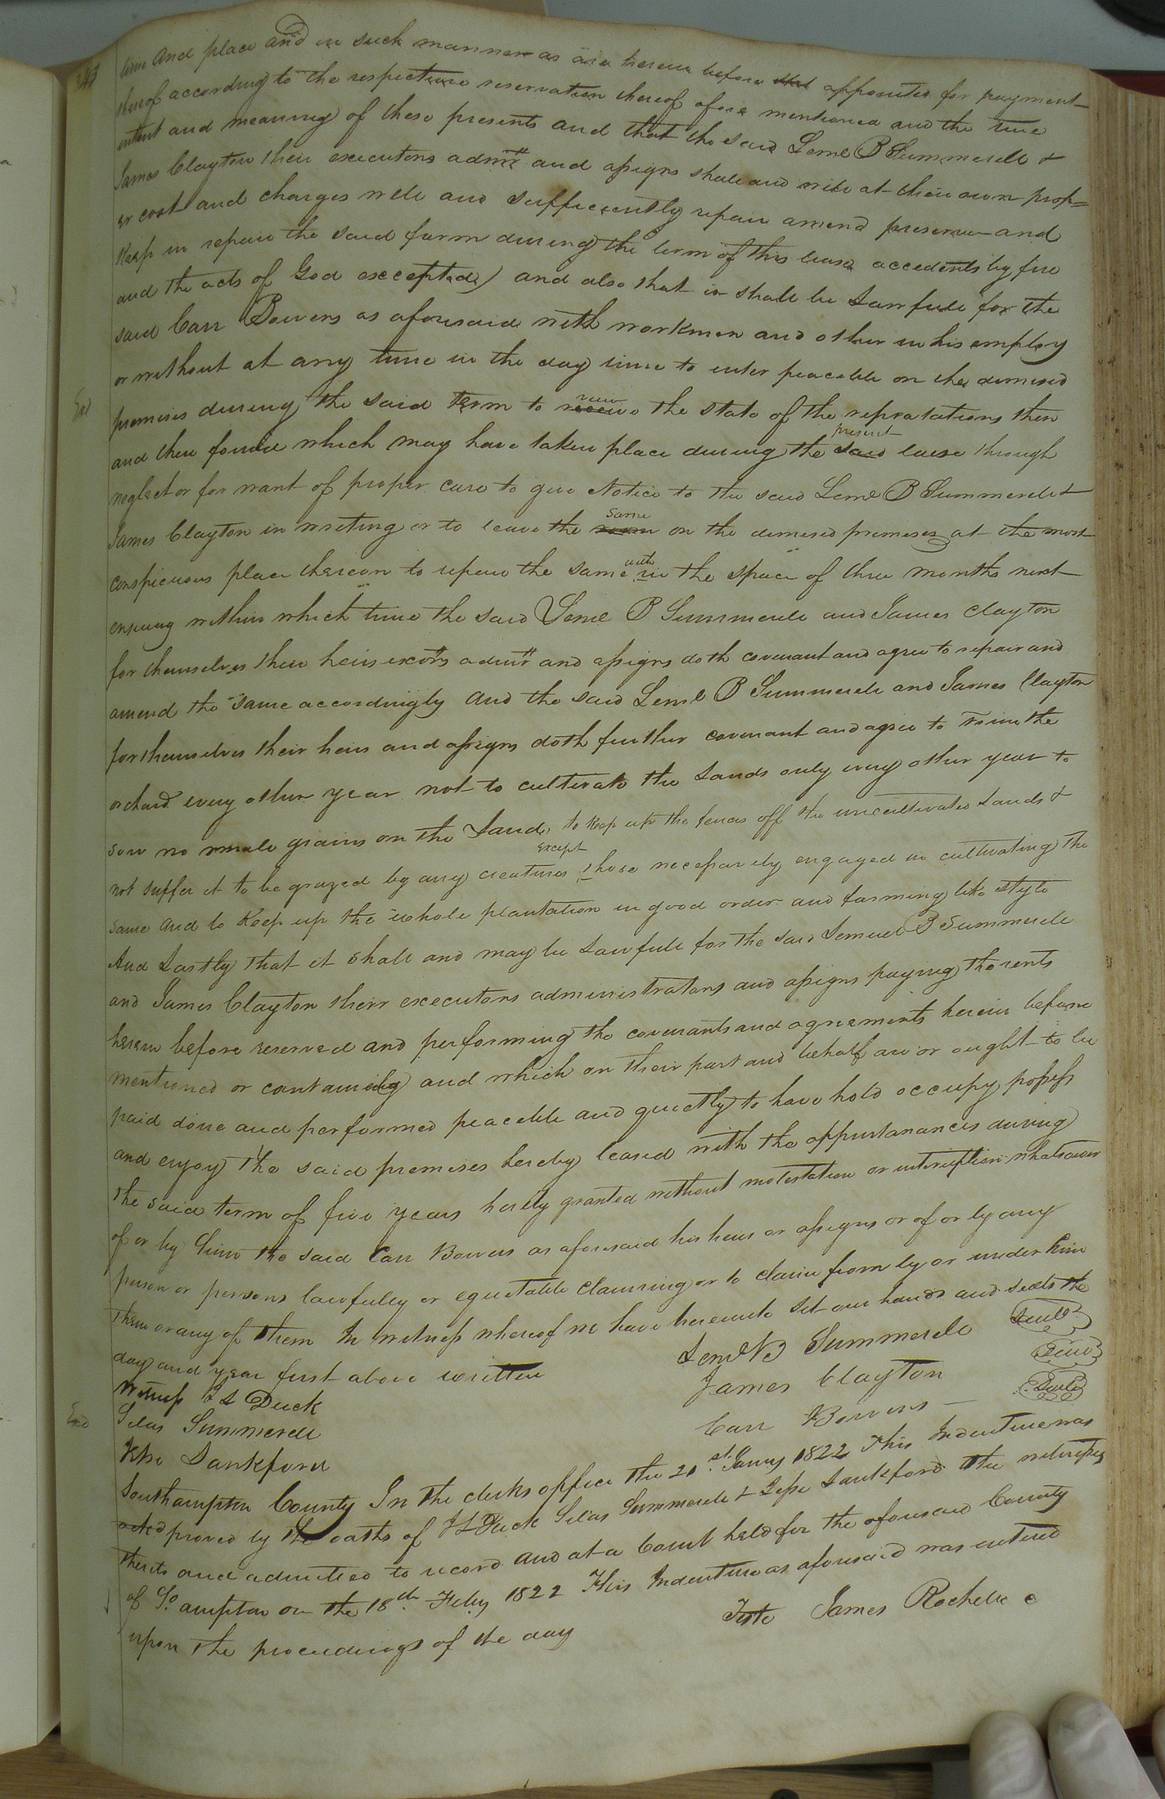 time and place and in such manner as are herein before that appointed for payment
thereof according to the respective reservation thereof afore mentioned and the true
intent and meaning of these presents and that the said Leml B Summerell &
James Clayton their executors admrs and assigns shall and will at their own prop=
er cost and charges well and sufficiently repair amend preserve and
Keep in repair the said farm during the term of this lease accedents by fire
and the acts of God excepted) and also that it shall be Lawfull for the
said Carr Bowers as aforesaid with workmen and other in his employ
or without at any time in the day time to enter peacable on the demised
premises during the said term to receive view the state of the repratations then
and there found which may have taken place during the said present lease through
neglect or for want of proper care to give Notice to the said Leml B Summerell &
James Clayton in writing or to leave the same on the demised premises at the most
conspicuous place thereon to repair the same with in the space of three months next
ensuing within which time the said Leml B Summerell and James Clayton
for themselves their heirs excors admrs and assigns doth covenant and agree to repair and
amend the same accordingly And the said Leml B Summerell and James Clayton
for themselves their heirs and assigns doth further covenant and agree to Trim the
orchard every other year not to cultivate the Lands only every other year to
sow no small grains on the Land, to Keep up the fences off the uncultivated Lands &
not suffer it to be grazed by any creatures except those necessarily engaged in cultivating the
same and to Keep up the whole plantation in good order and farming like style
And Lastly that it shall and may be Lawfull for the said Lemuel B Summerell
and James Clayton their executors administrators and assigns paying the rents
herein before reserved and performing the covenants and agreements herein before
mentioned or containing and which on their part and behalf are or ought to be
paid done and performed peacable and quietly to have hold occupy possess
and enjoy the said premises hereby leased with the appurtanances during
the said term of five years hereby granted without molestation or interuption whatsoever
of or by him the said Carr Bowers as aforesaid his heirs or assigns or of or by any
person or persons lawfully or equitable claiming or to claim from by or under him
them or any of them In witness whereof we have hereunto set our hands and seals the
day and year first above written
Leml B Summerell Seal
James Clayton Seal
Carr Bowers Seal
Witness J L Duck
Silas Summerell
Lankford
Southampton County In the clerks office the 21st Jany 1822 This Indenture was
proved by the oaths of J L Duck Silas Summerell & Jesse Lankford the witnesses
thereto and admitted to record And at a Court held for the aforesaid County
of So ampton on the 18th Feby 1822 This Indenture as aforesaid was entered
upon the proceedings of the day
Teste James Rochelle c